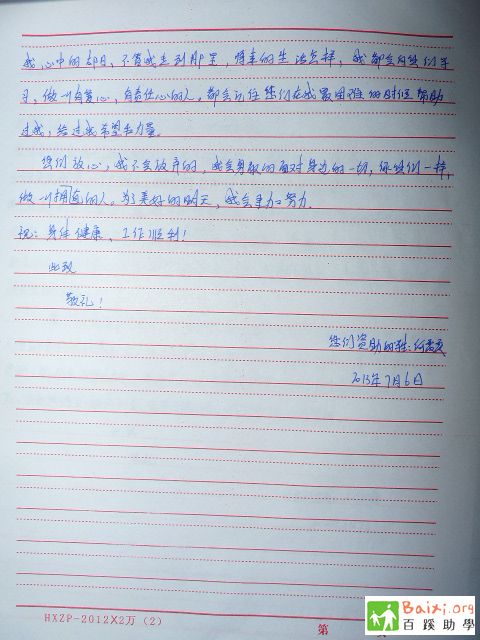 我心中的却日，不管我走到那里，将来的生活怎样，我都会向您们学
习，做一个有爱心，有责任心的人。都会记住您们在我最困难的时候帮助
过我，给过我希望和力量。
您们放心，我不会放弃的，我会勇敢的面对身边的一切，像您们一样，
做一个正直的人。为了美好的明天，我会更加努力。
祝：身体健康、工作顺利！
此致
敬礼！
您们资助的
2013年7月6日
HXZP-2012X2万（2）
第
Baixi.org
百蹊助學